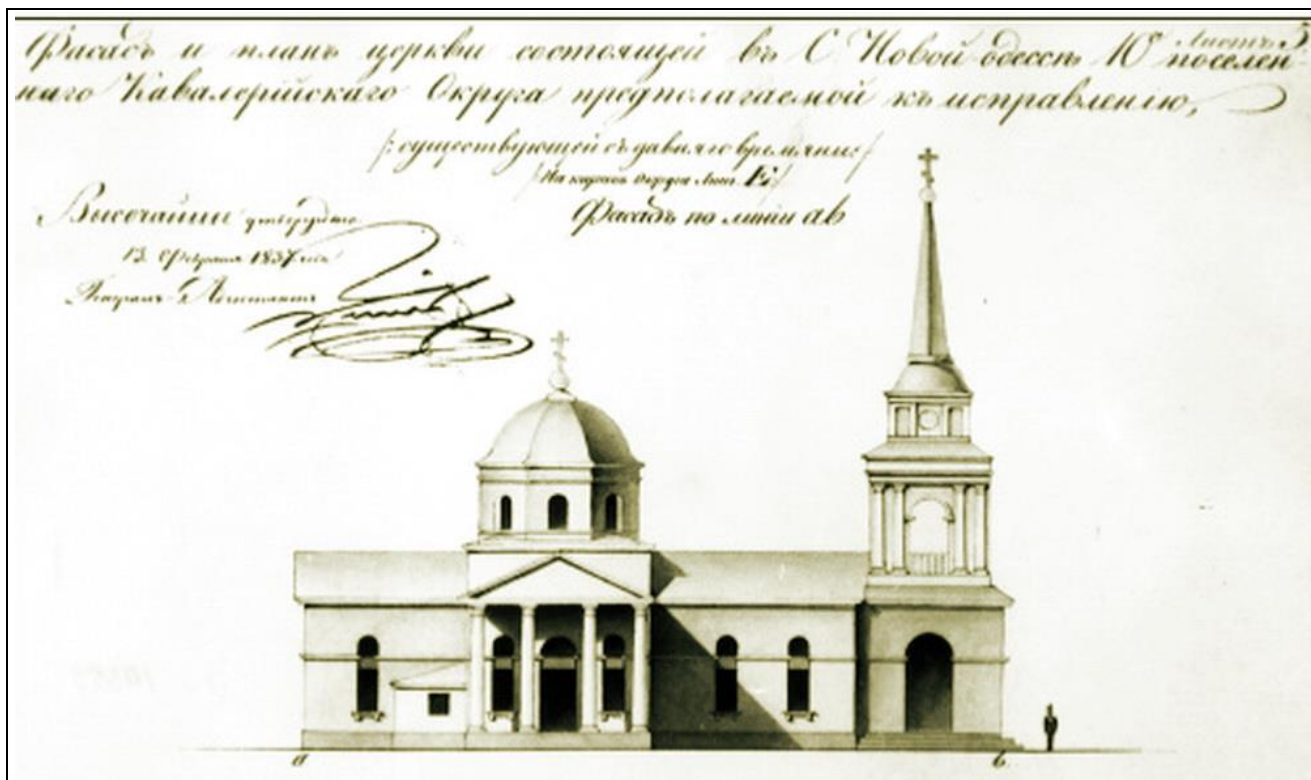 Листъ 5
Фасадъ и планъ церкви состоящей въ С. Новой Одессѣ 10го поселен-
наго Кавалерійскаго Округа предполагаемой къ исправленію,
/: существующей съ давняго времяни :/
/ На картѣ Округа Лит. Е /
Фасадъ по линіи ab
Высочайше утверждено
13 Февраля 1837 года
Генералъ-Адъютантъ
a
b